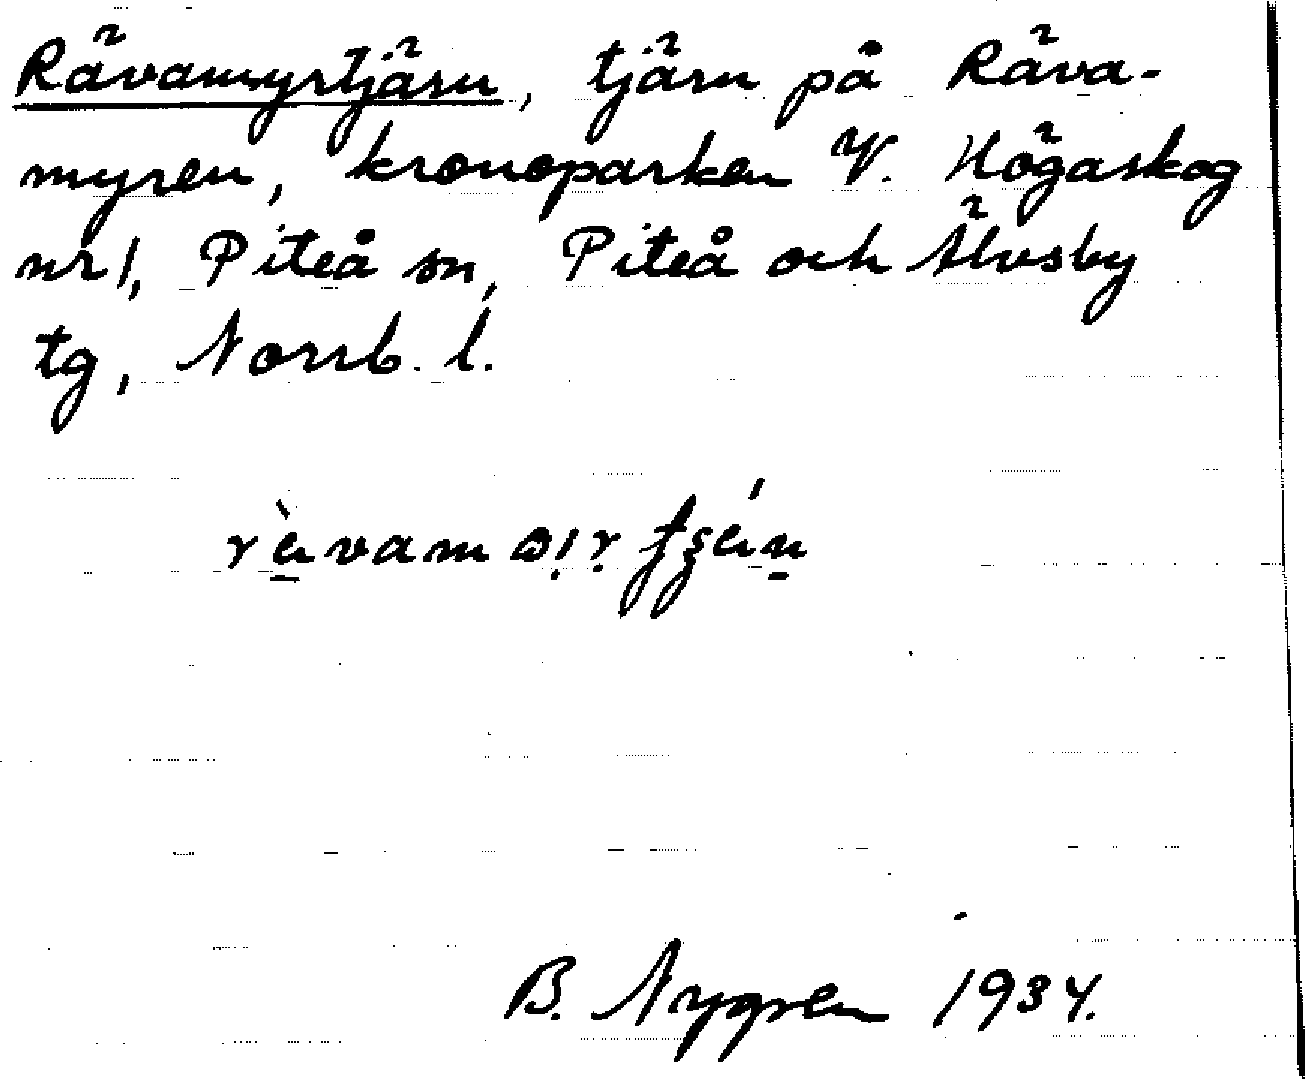 Rävamyrtjärn, tjärn på Räva-
myren, kronoparken V. Högaskog
nr 1, Piteå sn, Piteå och Älvsby
tg, Norrb. l.
B. Nygren 1934.